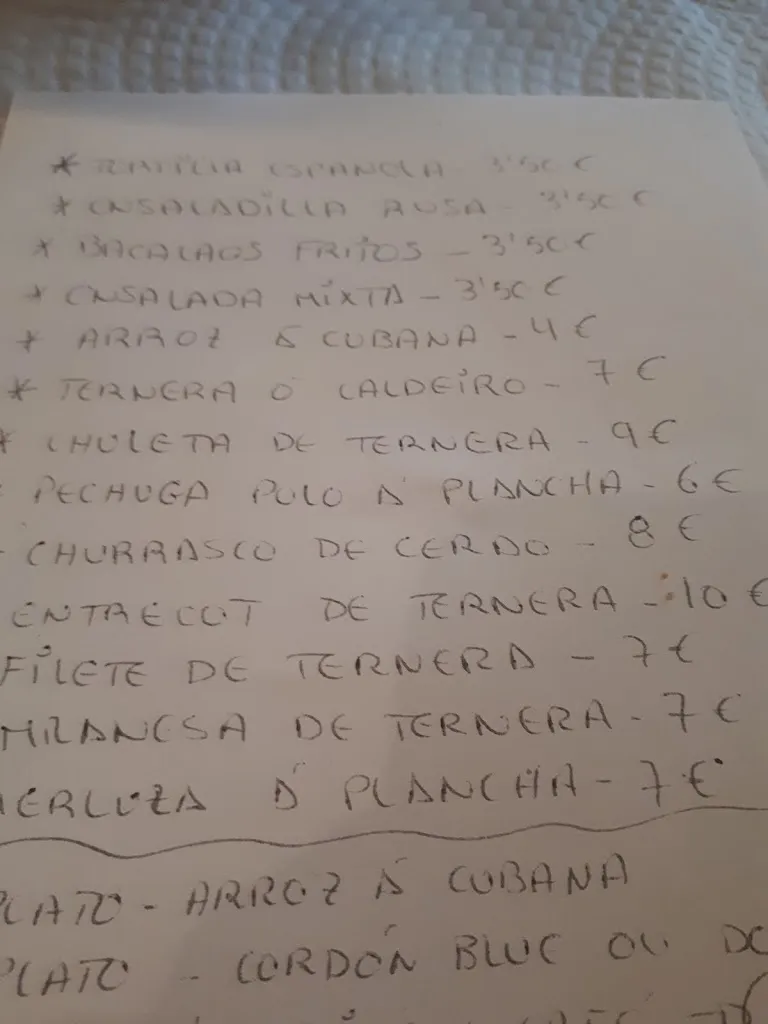 * TORTILLA ESPANOLA - 3'50 €
* ENSALADILLA RUSA - 3'50 €
* BACALAOS FRITOS - 3'50 €
* ENSALADA MIXTA - 3'50 €
* ARROZ Á CUBANA - 4 €
* TERNERA Ó CALDEIRO - 7 €
* CHULETA DE TERNERA - 9 €
PECHUGA POLO Á PLANCHA - 6 €
- CHURRASCO DE CERDO - 8 €
ENTRECOT DE TERNERA - 10 €
FILETE DE TERNERA - 7 €
MILANESA DE TERNERA - 7 €
MERLUZA Á PLANCHA - 7 €
PLATO - ARROZ Á CUBANA
PLATO - CORDÓN BLUE OU